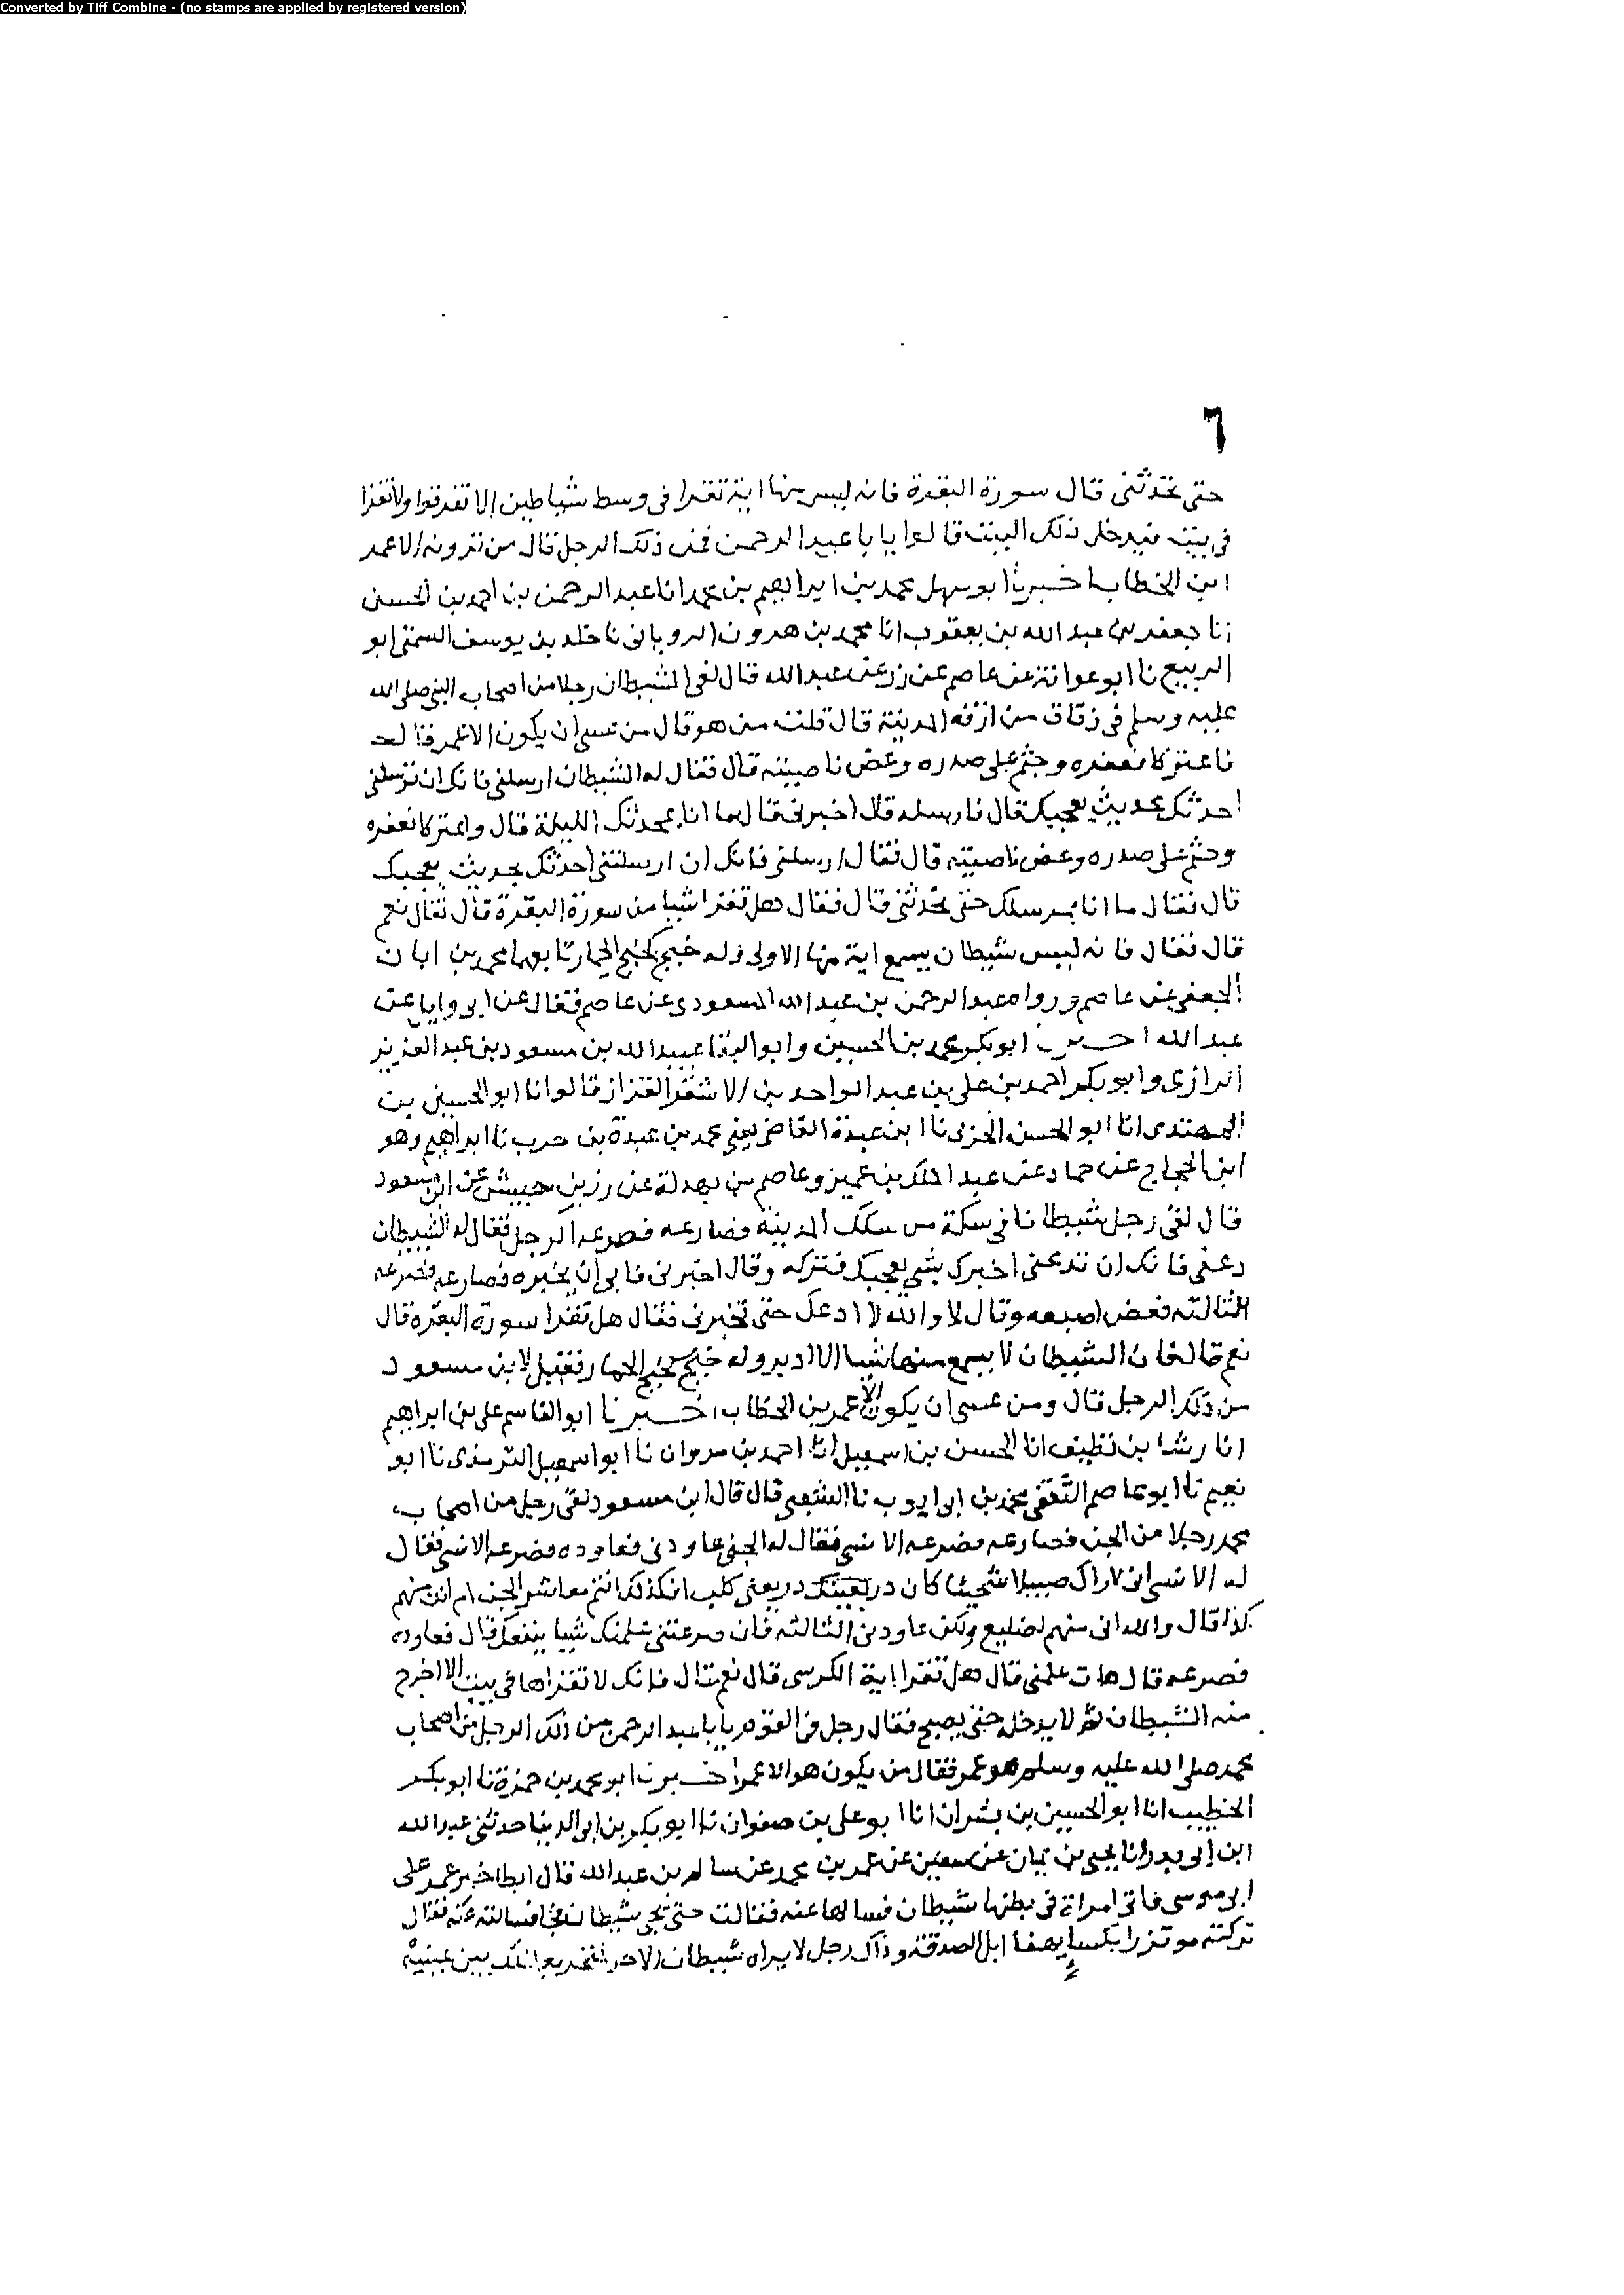 Converted by Tiff Combine - (no stamps are applied by registered version)
٦
حتى تحدثني قال سورة البقرة فانه ليس منها اية تقرا في وسط شياطين الا تفرقوا ولا تقرا
في بيت فيدخل ذلك البيت قالوا يا با عبد الرحمن فمن ذلك الرجل قال من ترونه الا عمر
ابن الخطاب اخبرنا ابو سهل محمد بن ابراهيم بن محمد انا عبد الرحمن بن احمد بن الحسن
انا جعفر بن عبد الله بن يعقوب انا محمد بن هرون الروياني نا خلد بن يوسف السمتي ابو
الربيع نا ابو عوانة عن عاصم عن زر عن عبد الله قال لقي الشيطان رجلا من اصحاب النبي صلى الله
عليه وسلم في زقاق من ازقه المدينة قال قلت من هو قال من عسى ان يكون الا عمر قال
فاعتركا فعفره وجثم على صدره وعض ناصيته قال فقال له الشيطان ارسلني فانك ان ترسلني
احدثك بحديث يعجبك قال فارسله قال اخبرني قال ما انا بمحدثك الليلة قال واعتركا فعفره
وجثم على صدره وعض ناصيته قال فقال ارسلني فانك ان ارسلتني احدثك بحديث يعجبك
قال فقال ما انا بمرسلك حتى تحدثني قال فقال هل تقرا شيا من سورة البقرة قال فقال نعم
قال فقال فانه ليس شيطان يسمع اية منها الا ولى وله خبج كخبج الحمار تابعهما محمد بن ابان
الجعفي عن عاصم ورواه عبد الرحمن بن عبد الله المسعودي عن عاصم فقال عن ابي وايل عن
عبد الله اخبرنا ابو بكر محمد بن الحسين وابو البقا عبيد الله بن مسعود بن عبد العزيز
الرازي وابو بكر احمد بن علي بن عبد الواحد بن الاشقر القزاز قالوا انا ابو الحسين بن
المهتدي انا ابو الحسن الحربي نا ابن عبدة القاضي يعني محمد بن عبدة بن حرب نا ابراهيم وهو
ابن الحجاج عن حماد عن عبد الملك بن عمير وعاصم بن بهدلة عن زر بن حبيش عن ابن مسعود
قال لقي رجل شيطانا في سكة من سكك المدينه فصارعه فصرعه الرجل فقال له الشيطان
دعني فانك ان تدعني اخبرك بشي يعجبك فتركه وقال اخبرني فابى ان يخبره فصارعه فصرعه
الثالثه فعض اصبعه وقال لا والله لا ادعك حتى تخبرني فقال هل تقرا سورة البقرة قال
نعم قال فان الشيطان لا يسمع منها شيا الا ادبر وله خبج كخبج الحمار فقيل لابن مسعود
من ذلك الرجل قال ومن عسى ان يكون الا عمر بن الخطاب اخبرنا ابو القاسم علي بن ابراهيم
انا رشا بن نظيف انا الحسن بن اسمعيل انا احمد بن مروان نا ابو اسمعيل الترمذي نا ابو
نعيم نا ابو عاصم الثقفي محمد بن ابي ايوب نا الشعبي قال قال ابن مسعود لقي رجل من اصحاب
محمد رجلا من الجن فصارعه فصرعه الانسي فقال له الجني عاودني فعاوده فصرعه الانسي فقال
له الانسي اني لاراك ضييلا شخيتا كان دريعتيك دريعتي كلب افكذلك انتم معاشر الجن ام انت منهم
كذا قال والله اني منهم لضليع ولكن عاودني الثالثه فان صرعتني علمتك شيا ينفعك قال فعاوده
فصرعه قال هات علمني قال هل تقرا اية الكرسي قال نعم قال فانك لا تقراها في بيت الا خرج
منه الشيطان ثم لا يدخله حتى يصبح فقال رجل في القوم يا با عبد الرحمن من ذلك الرجل من اصحاب
محمد صلى الله عليه وسلم هو عمر فقال من يكون هو الا عمر اخبرنا ابو محمد بن حمزة نا ابو بكر
الخطيب انا ابو الحسين بن بشران انا ابو علي بن صفوان نا ابو بكر بن ابي الدنيا حدثني عبد الله
ابن ابي بدر انا يحيى بن يمان عن سفين عن عمر بن محمد عن سالم بن عبد الله قال ابطا خبر عمر على
ابي موسى فاتى امراة في بطنها شيطان فسالها عنه فقالت حتى يجي شيطاني فجا فسالته عنه فقال
تركته موتزرا بكساء يهنا ابل الصدقة وذاك رجل لا يراه شيطان الا خر لمنخريه الملك بين عينيه